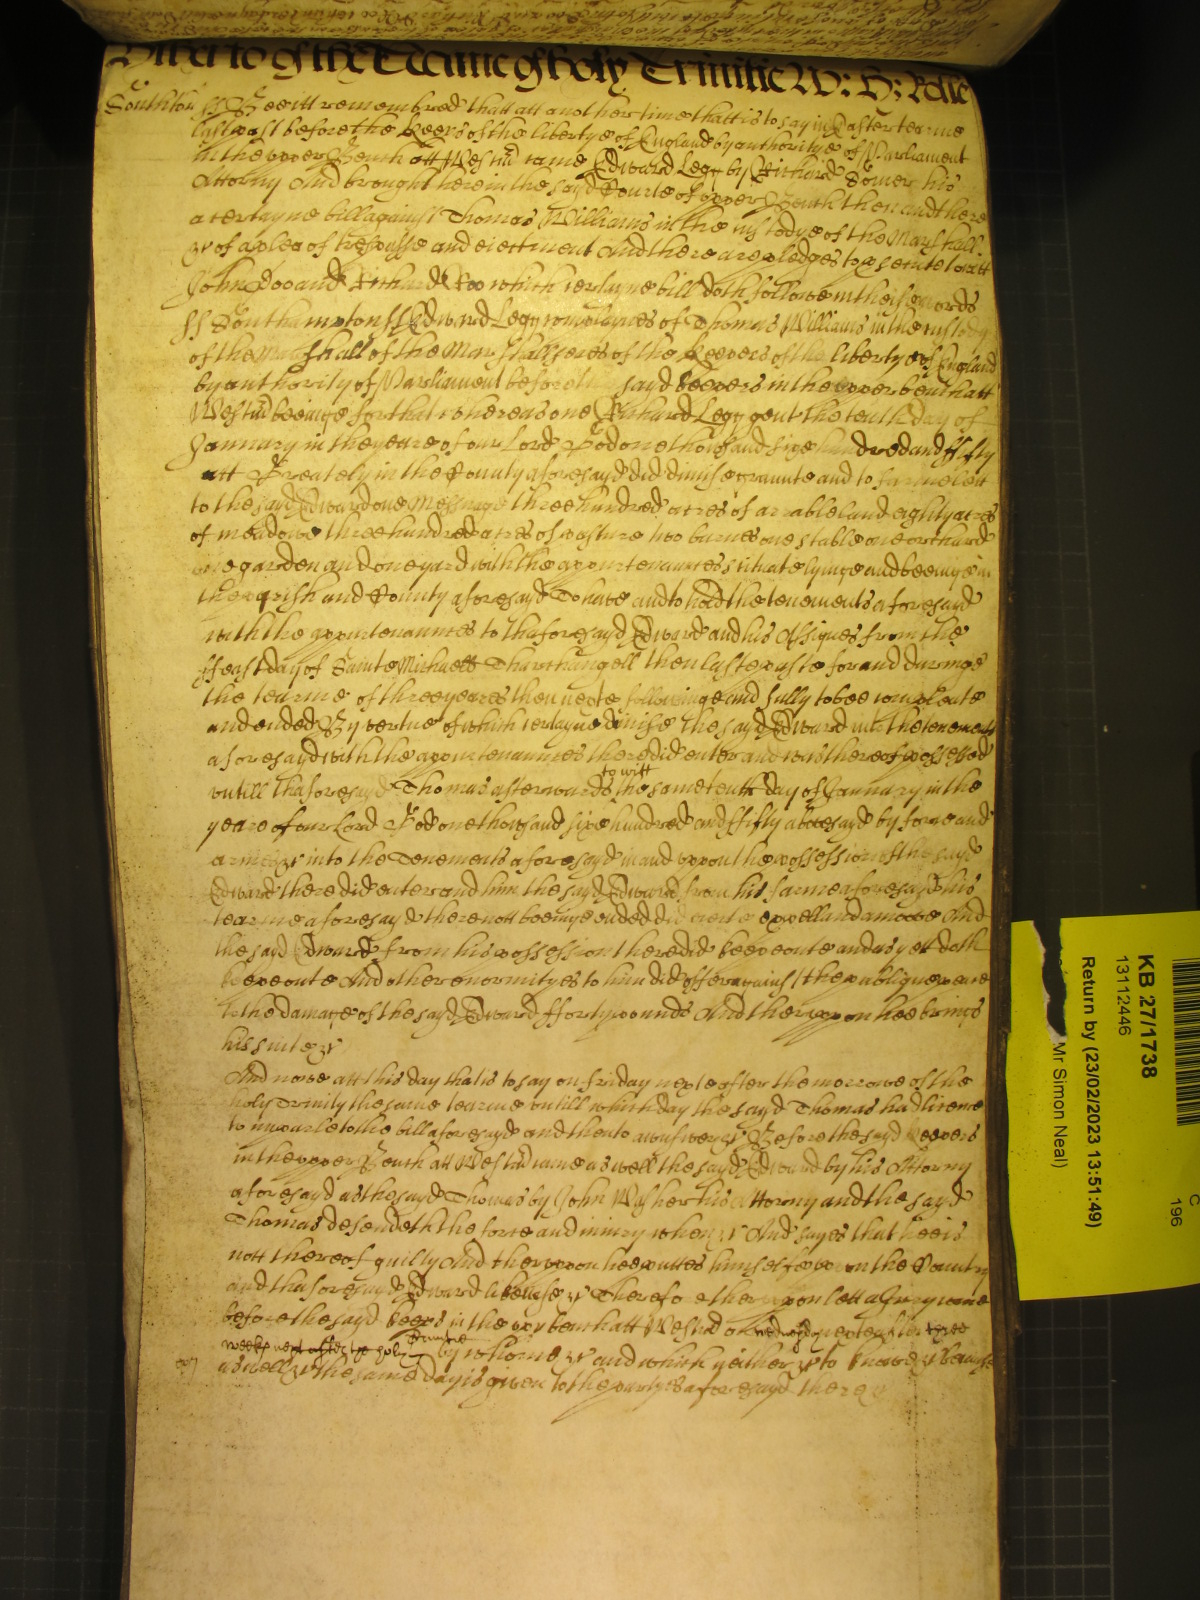 to of the Tearme of holy Trinitie W: H: Rolle
Southton ss Bee itt remembred thatt att another time thatt is to say in Easter tearme
last past before the Keeps of the liberty of England by authoritye of Parliament
in the upper Bench att Westm came Edward Legg by Richard Somer his
Attorny And brought here in the sayd Courte of upper Bench then and there
a certayne bill against Thomas Williams in the custodye of the Marshall
&c of a plea of trespasse and eiectment And there are pledges to prosecute to witt
John Doo and Richard Roo which certayne bill doth followe in theis words
ss Southampton ss Edward Legg complaynes of Thomas Williams in the custody
of the Marshall of the Marshallsees of the Keepers of the liberty of England
by authority of Parliament before the sayd Keepers in the upper bench att
Westm beeinge for that whereas one Richard Legg gent the tenth day of
January in the yeare of our Lord God one thousand sixe hundred and ffifty
att in the County aforesayd did dimise graunte and to farme lett
to the sayd Edward one Messuage three hundred acres of arrable land eighty acres
of meadowe three hundred acres of pasture two barnes one stable one orchard
one garden and one yard with the appurtenaunces situate lyinge and beeinge in
the parish and County aforesayd To have and to hold the tenements aforesayd
with the appurtenaunces to thaforesayd Edward and his Assignes from the
ffeast day of Sainte Michaell Tharchangell then laste paste for and duringe
the tearme of three yeares then nexte followinge and fully to bee compleate
and ended By vertue of which certayne dimise the sayd Edward into the tenements
aforesayd with the appurtenaunces there did enter and was thereof possessed
untill thaforesayd Thomas afterwards to witt the same tenth day of January in the
yeare of our Lord God one thousand sixe hundred and ffifty abovesayd by force and
armes &c into the Tenements aforesayd in and uppon the possession of the sayd
Edward there did enter and him the sayd Edward from his farme aforesayd his
tearme aforesayd there nott beeinge ended did eiecte expell and amove And
the sayd Edward from his possession there did keepe oute and as yett doth
keepe oute And other enormityes to him did offer against the publique peace
To the damage of the sayd Edward ffortye pounds And thereuppon hee brings
his suite &c
And nowe att this day that is to say on friday nexte after the morrowe of the
holy Trinity the same tearme untill which day the sayd Thomas had licence
to imparle to the bill aforesayd and then to aunswere &c Before the sayd Keepers
in the upper Bench att Westm came as well the sayd Edward by his Attorny
aforesayd as the sayd Thomas by John Washer his Attorny and the sayd
Thomas defendeth the force and iniury when &c And sayes that hee is
nott thereof guilty And thereuppon hee puttes himselfe uppon the Country
and thaforesayd Edward likewise &c Therefore thereuppon lett a Jury come
before the sayd Keeps in the upper bench att Westm on wednesday next after three
weekes next after the holy Trinitie by whome &c and which neither &c to knowe &c because
aswell &c the same day is given to the partyes aforesayd there &c
KB 27/1738
13112446
Return by (23/02/2023 13:51:49)
Mr Simon Neal)
C
196